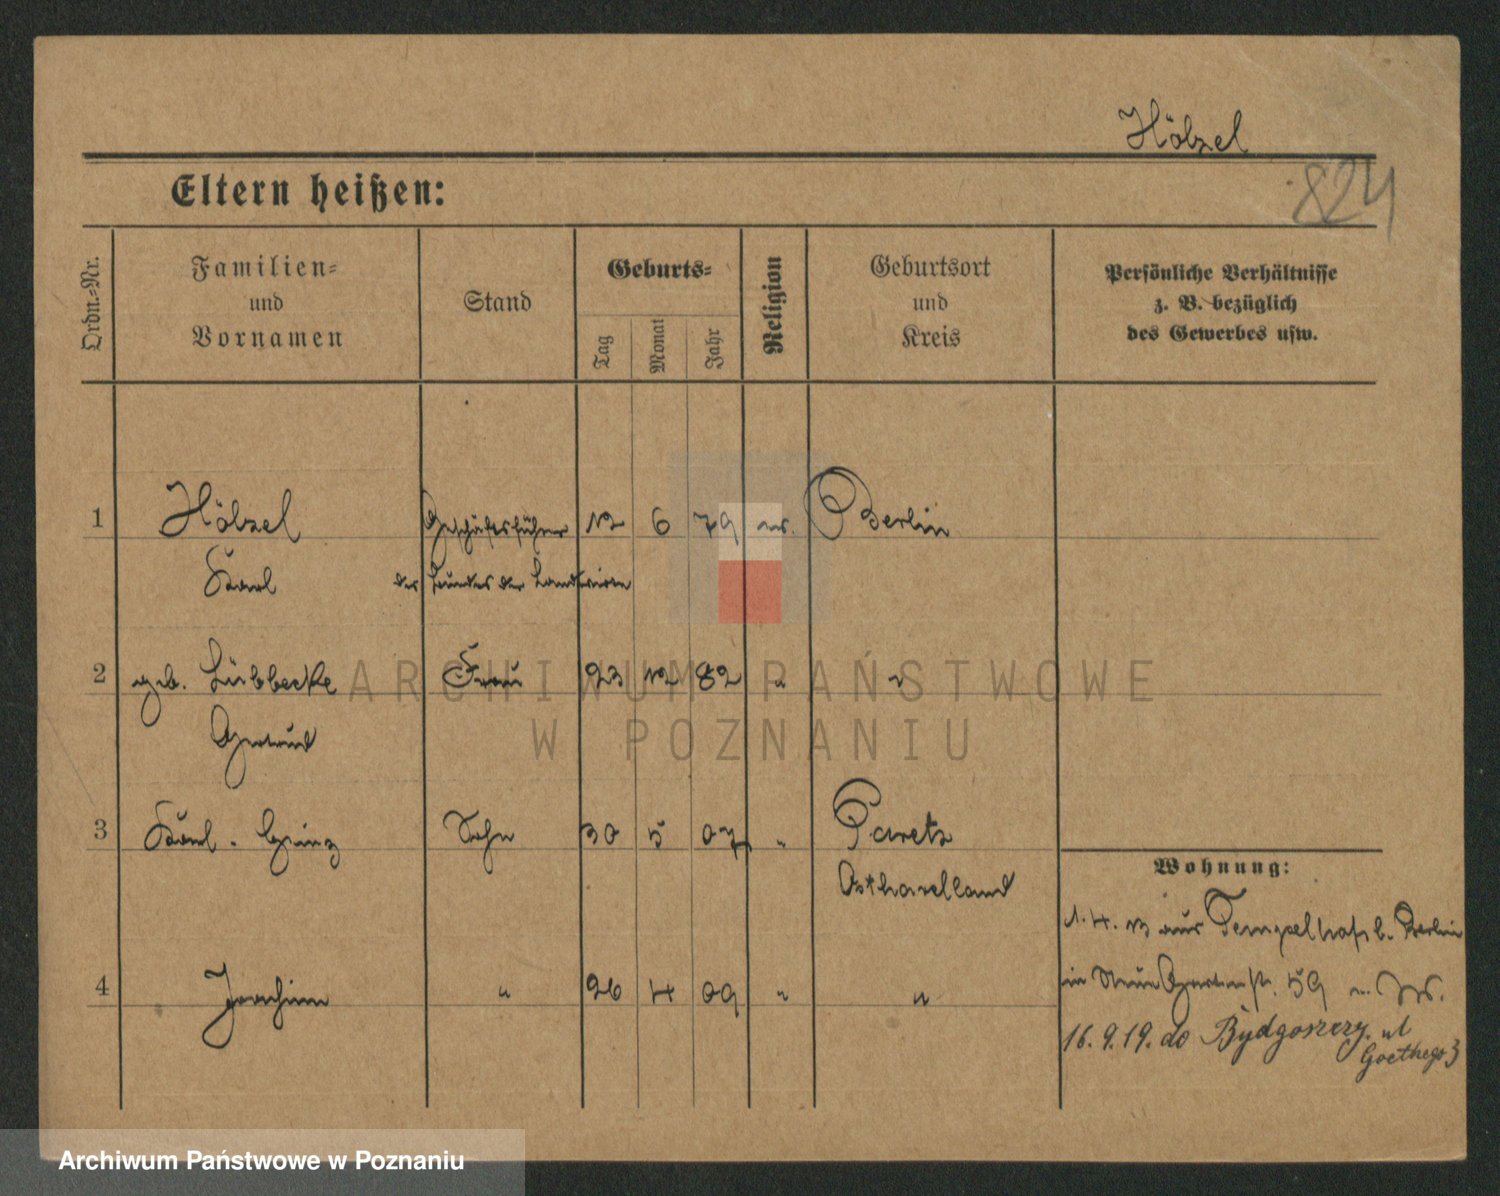 Hölzel
824
Eltern heißen:
Ordn.-Nr.
Familien-
und
Vornamen
Stand
Geburts-
Tag
Monat
Jahr
Religion
Geburtsort
und
Kreis
Persönliche Verhältnisse
z. B. bezüglich
des Gewerbes usw.
1 Hölzel Geschäftsführer 12 6 79 ev. Berlin
Karl des Bundes der Landwirte
2 geb. Lübbecke Frau 23 12 82 " "
Gertrud
3 Karl-Heinz Sohn 30 5 07 " Paretz
Osthavelland
4 Joachim " 26 4 09 " "
Wohnung:
1. 4. 13 aus Tempelhof b. Berlin
in Neue Gartenstr. 59
16. 9. 19. do Bydgoszczy. ul
Goethego 3
ARCHIWUM PAŃSTWOWE
W POZNANIU
Archiwum Państwowe w Poznaniu